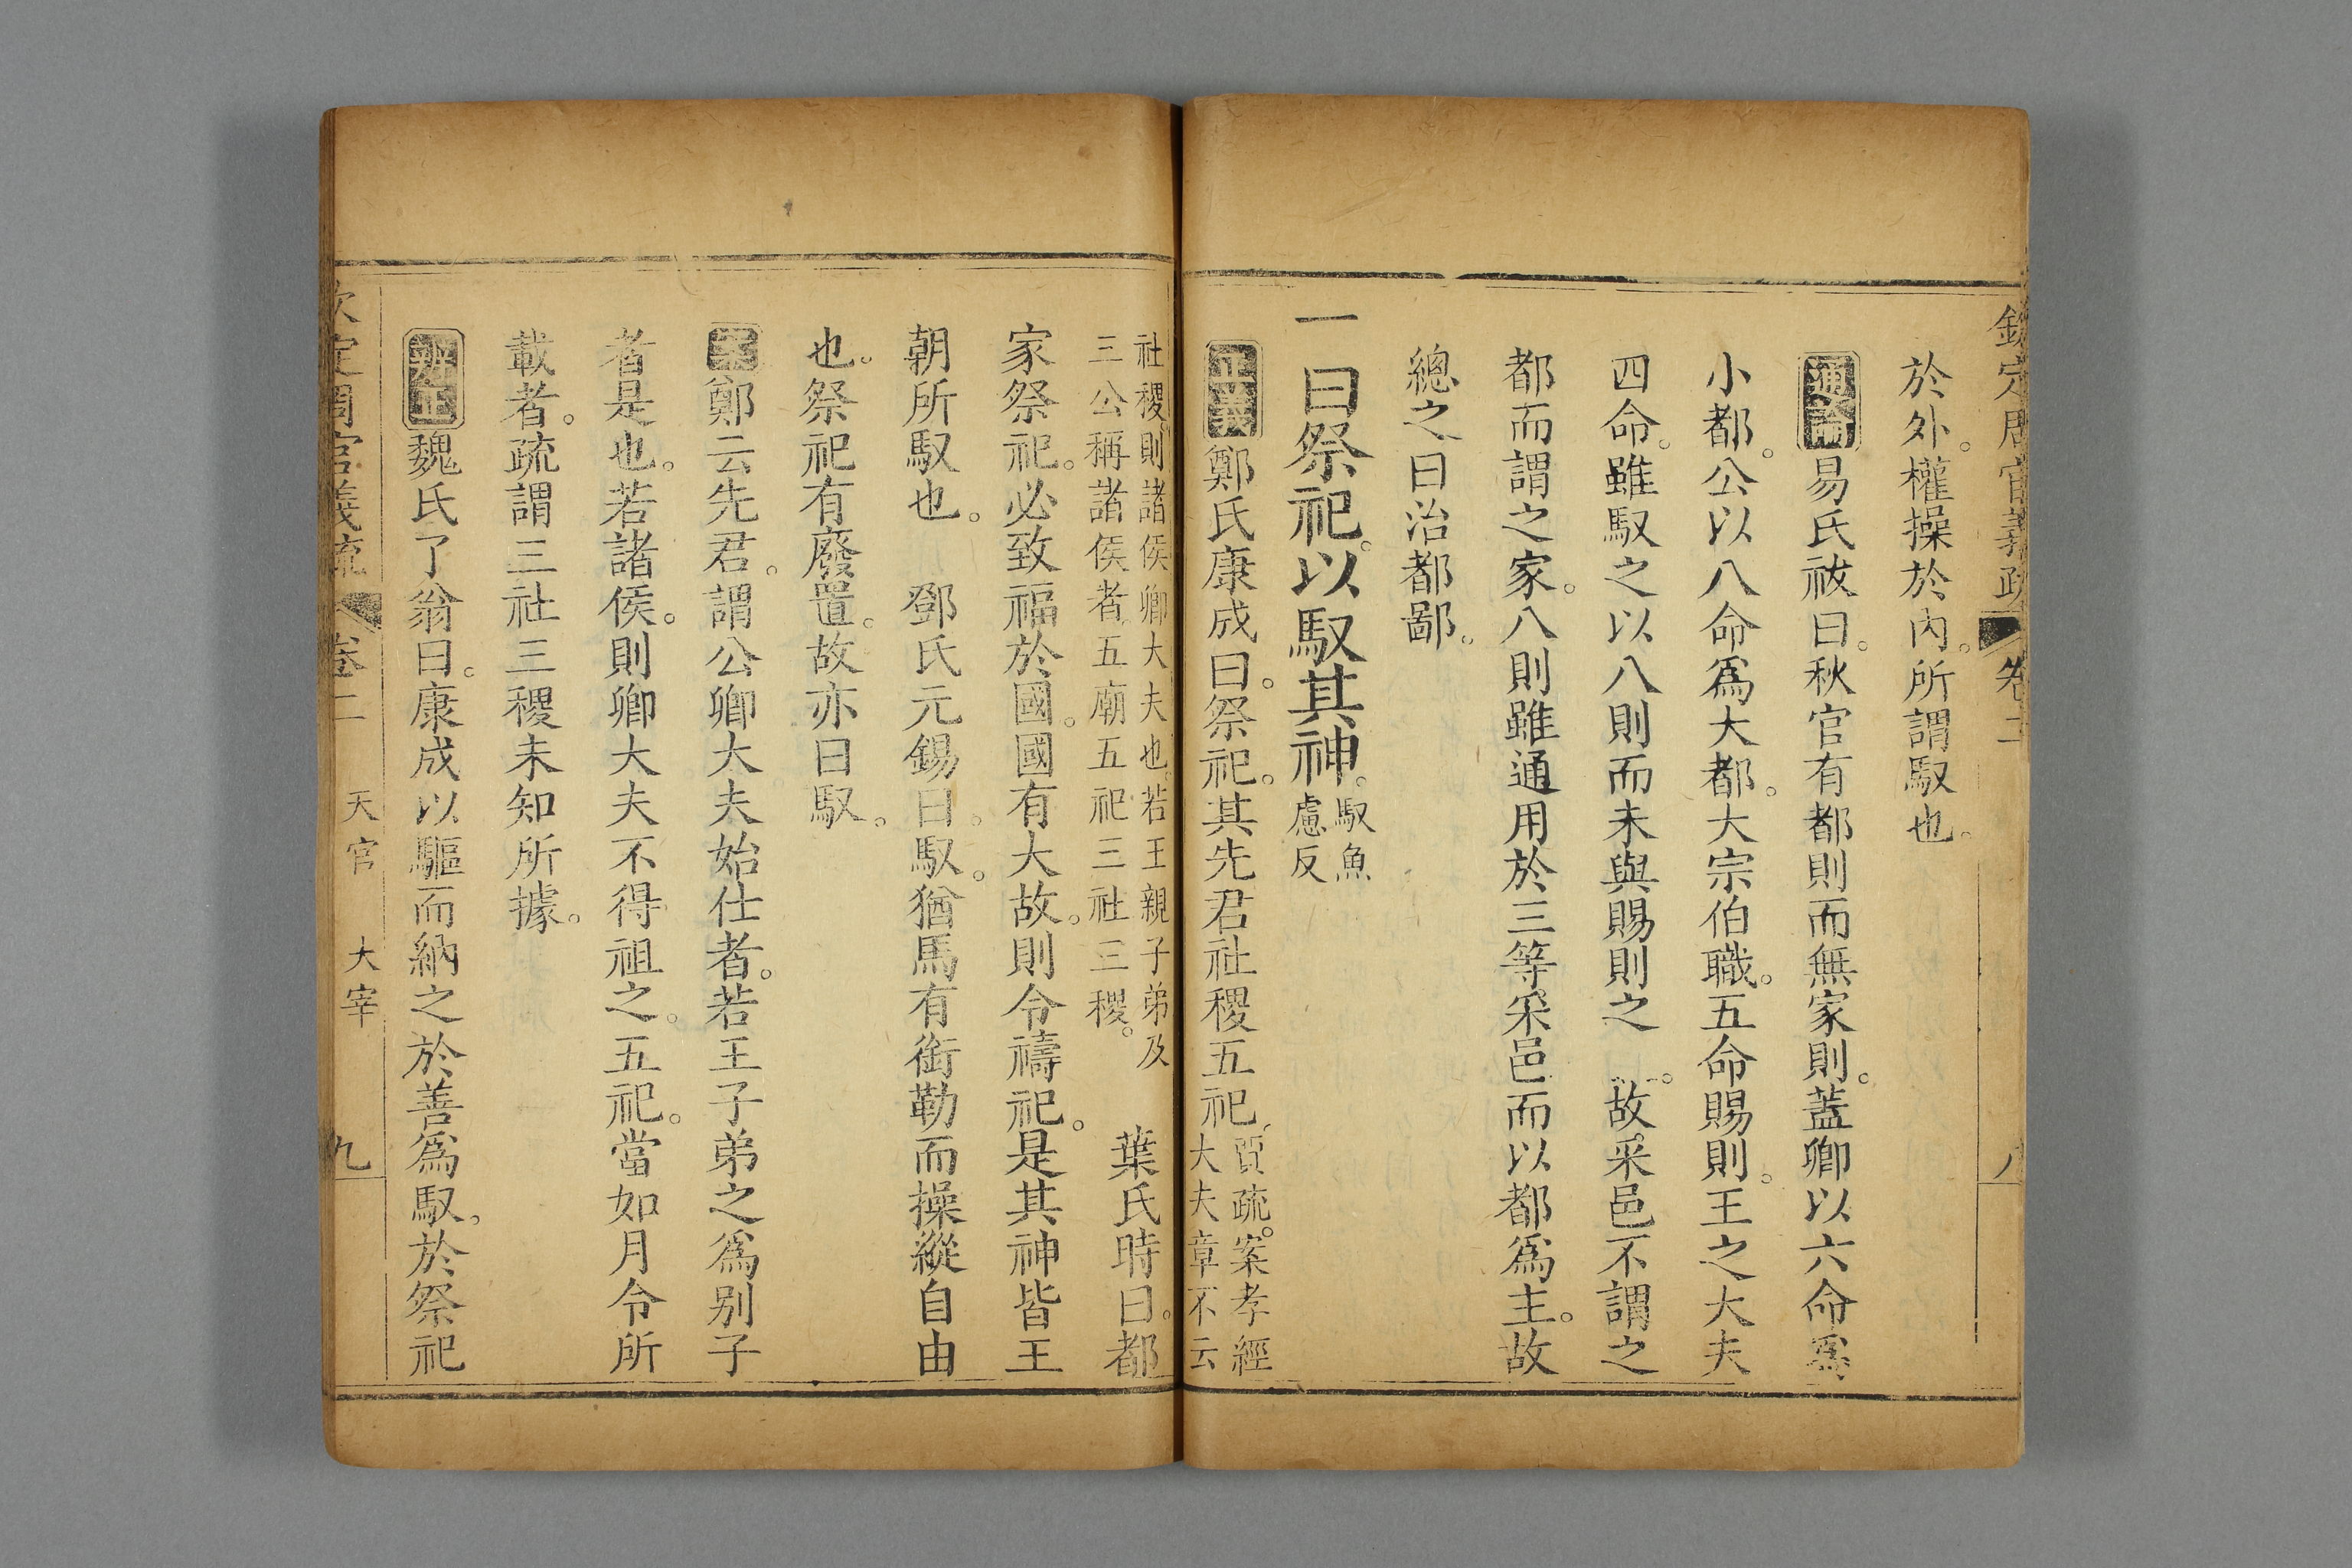 欽定周官義疏 卷二 八
於外。權操於內。所謂馭也。
通論易氏祓曰。秋官有都則而無家則。蓋卿以六命爲
小都。公以八命爲大都。大宗伯職。五命賜則。王之大夫
四命。雖馭之以八則而未與賜則之 故。采邑不謂之
都而謂之家。八則雖通用於三等采邑而以都爲主。故
總之曰治都鄙。
一曰祭祀。以馭其神。馭魚
慮反
正義鄭氏康成曰。祭祀。其先君社稷五祀。賈疏。案孝經
大夫章不云
社稷則諸侯卿大夫也。若王親子弟及
三公稱諸侯者。五廟五祀三社三稷。 葉氏時曰。都
家祭祀。必致福於國。國有大故。則令禱祀。是其神皆王
朝所馭也。 鄧氏元錫曰。馭。猶馬有銜勒而操縱自由
也。祭祀有廢置。故亦曰馭。
案鄭云先君。謂公卿大夫始仕者。若王子弟之爲別子
者是也。若諸侯。則卿大夫不得祖之。五祀。當如月令所
載者。疏謂三社三稷未知所據。
辨正魏氏了翁曰。康成以驅而納之於善爲馭。於祭祀
欽定周官義疏 卷二 天官 大宰 九